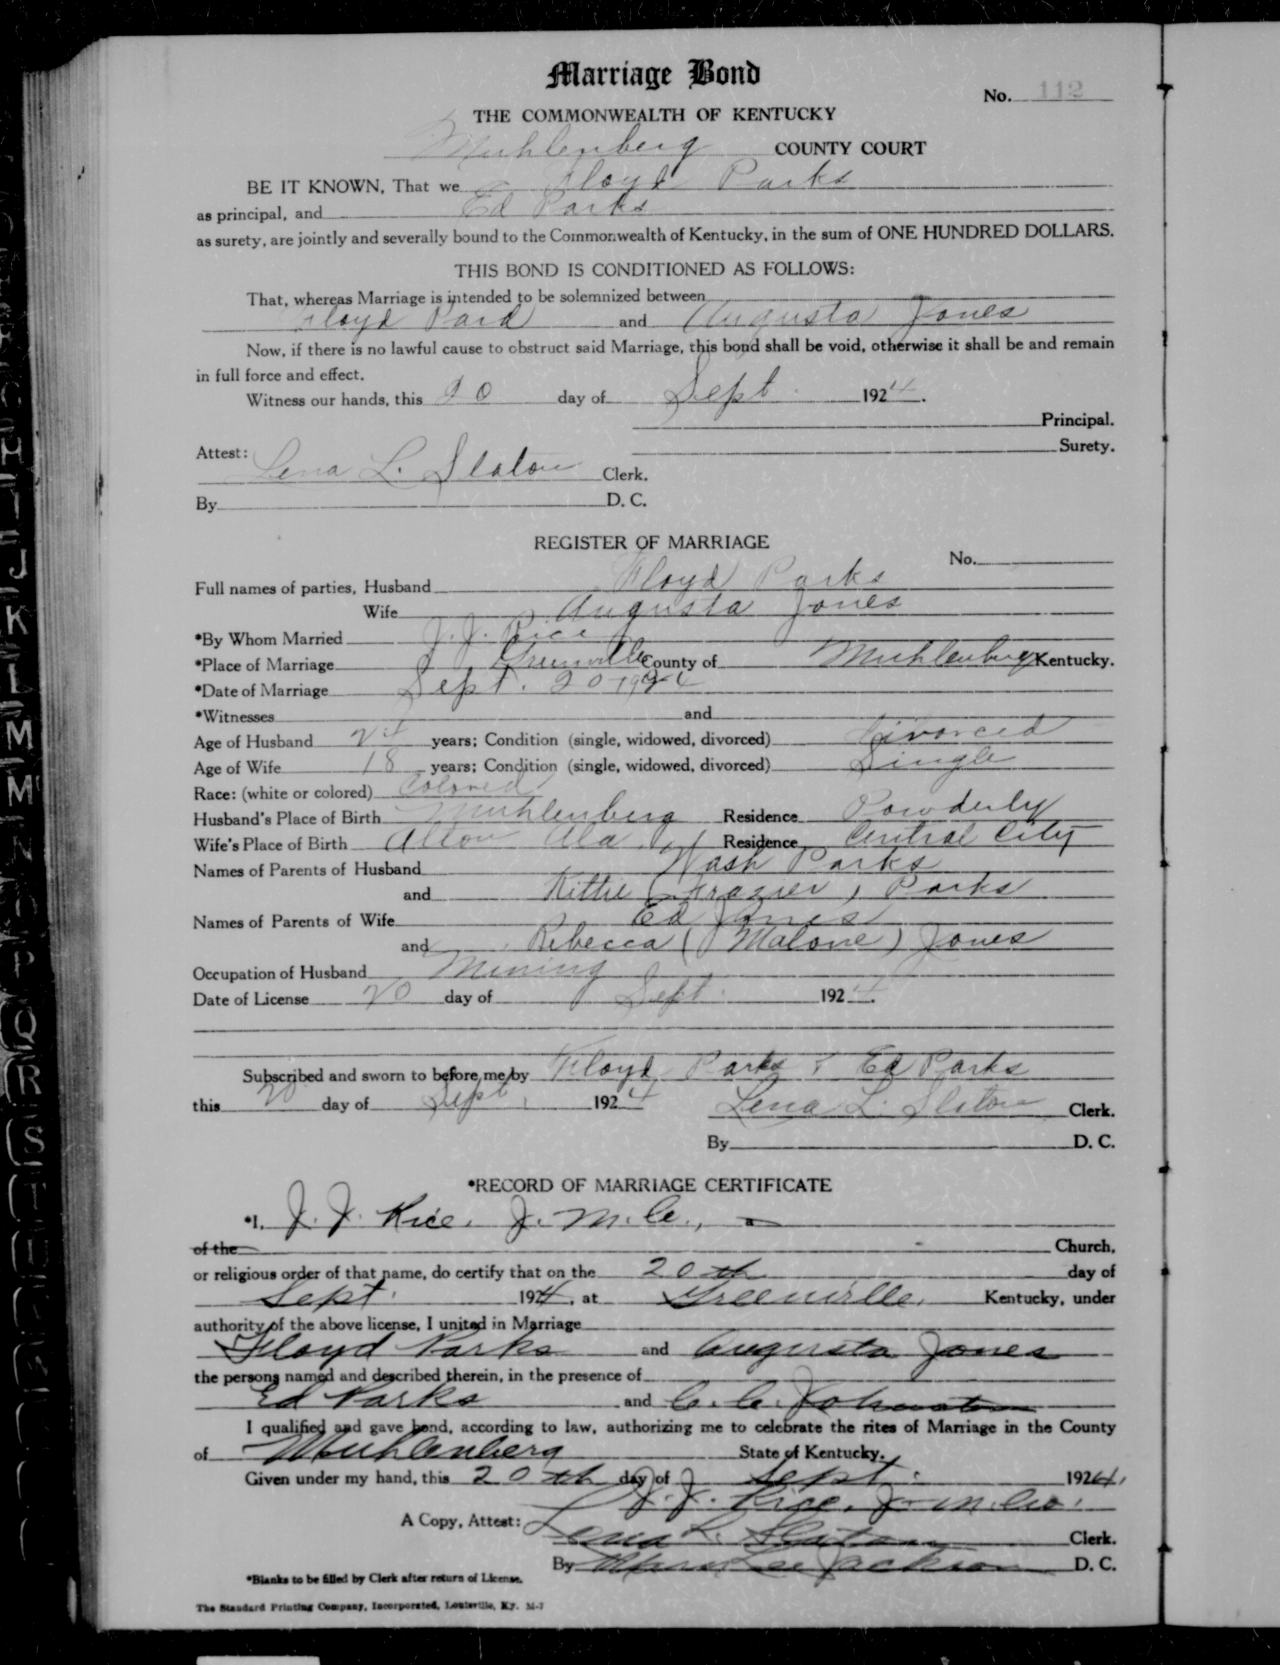 Marriage Bond
No. 112
THE COMMONWEALTH OF KENTUCKY
Muhlenberg COUNTY COURT
BE IT KNOWN, That we Floyd Parks
as principal, and Ed Parks
as surety, are jointly and severally bound to the Commonwealth of Kentucky, in the sum of ONE HUNDRED DOLLARS.
THIS BOND IS CONDITIONED AS FOLLOWS:
That, whereas Marriage is intended to be solemnized between
Floyd Pard and Augusta Jones
Now, if there is no lawful cause to obstruct said Marriage, this bond shall be void, otherwise it shall be and remain
in full force and effect.
Witness our hands, this 20 day of Sept. 1924.
Principal.
Surety.
Attest:
Lena L. Slaton Clerk.
By D. C.
REGISTER OF MARRIAGE
No.
Full names of parties, Husband Floyd Parks
Wife Augusta Jones
*By Whom Married J. J. Rice
*Place of Marriage Greenville County of Muhlenberg Kentucky.
*Date of Marriage Sept. 20 1924
*Witnesses and
Age of Husband 24 years; Condition (single, widowed, divorced) Divorced
Age of Wife 18 years; Condition (single, widowed, divorced) Single
Race: (white or colored) Colored
Husband's Place of Birth Muhlenberg Residence Powderly
Wife's Place of Birth Alton Ala. Residence Central City
Names of Parents of Husband Wash Parks
and Kittie (Frazier) Parks
Names of Parents of Wife Ed Jones
and Rebecca (Malone) Jones
Occupation of Husband Mining
Date of License 20 day of Sept. 1924.
Subscribed and sworn to before me by Floyd Parks & Ed Parks
this 20 day of Sept. 1924 Lena L. Slaton Clerk.
By D. C.
*RECORD OF MARRIAGE CERTIFICATE
*I, J. J. Rice, J. M. C.,
of the Church,
or religious order of that name, do certify that on the 20th day of
Sept. 1924, at Greenville, Kentucky, under
authority of the above license, I united in Marriage
Floyd Parks and Augusta Jones
the persons named and described therein, in the presence of
Ed Parks and C. C. Johnston
I qualified and gave bond, according to law, authorizing me to celebrate the rites of Marriage in the County
of Muhlenberg State of Kentucky.
Given under my hand, this 20th day of Sept. 1924.
J. J. Rice, J. M. Co.
A Copy, Attest: Lena L. Slaton Clerk.
By Lee Jackson D. C.
*Blanks to be filled by Clerk after return of License.
The Standard Printing Company, Incorporated, Louisville, Ky. M-7
H
I
J
K
L
M
Mc
N
O
P
Q
R
S
T